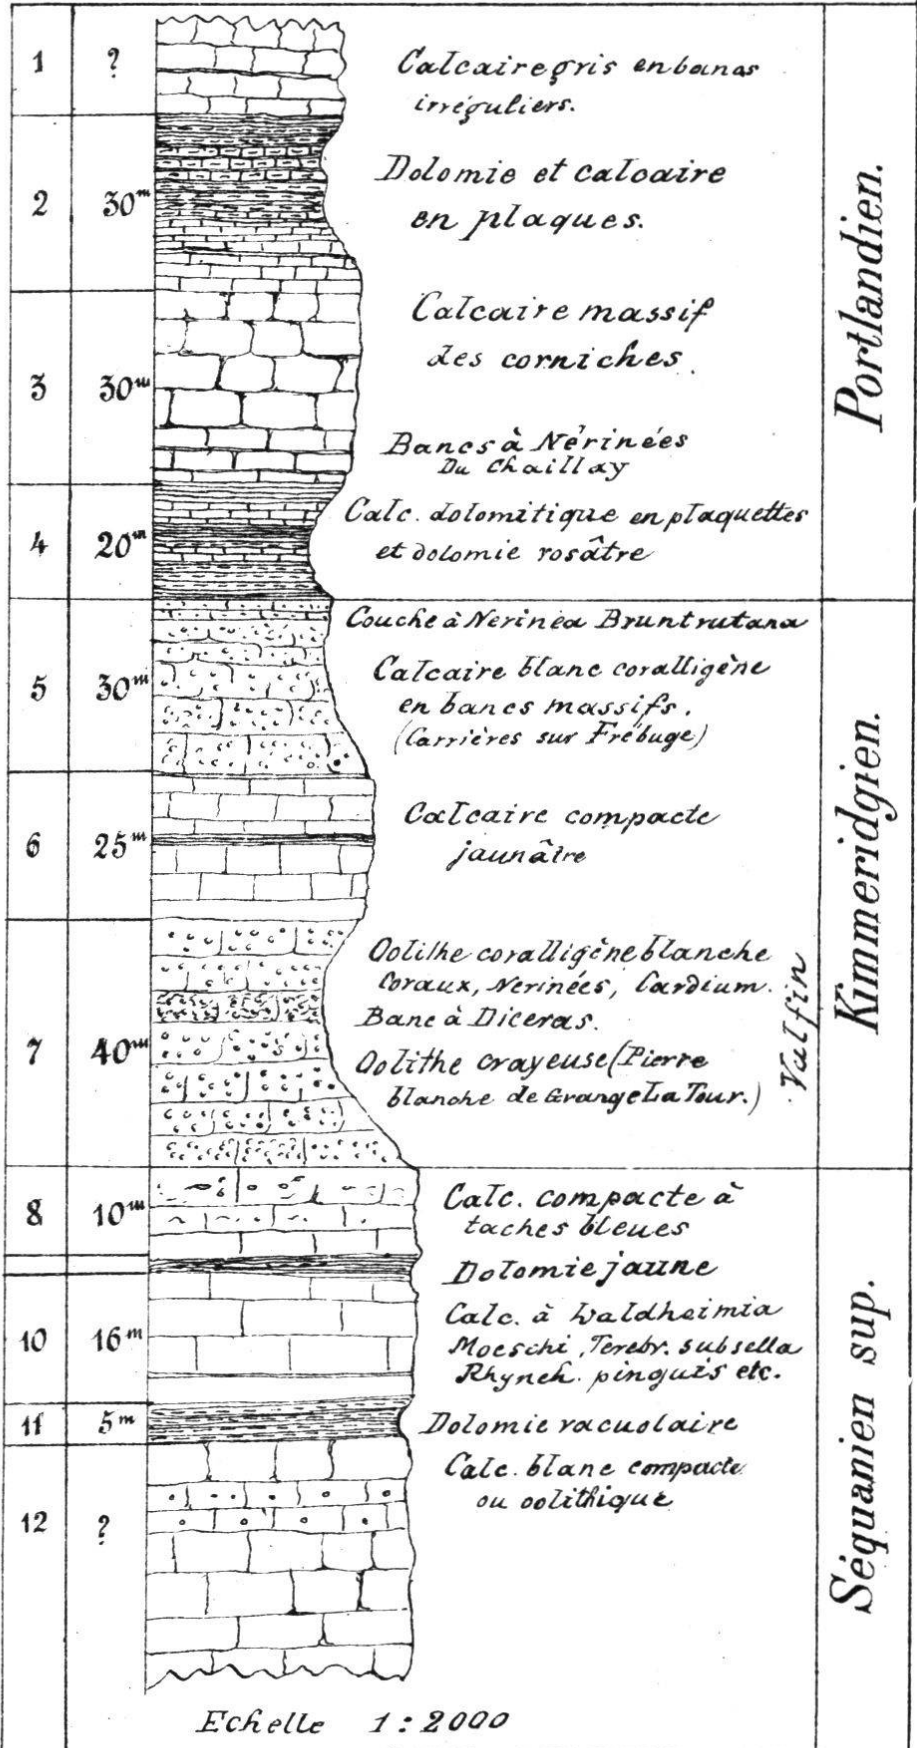 1
?
Calcaire gris en bancs
irréguliers.
2
30m
Dolomie et calcaire
en plaques.
Calcaire massif
des corniches.
3
30m
Bancs à Nérinées
Du Chaillay
Calc. dolomitique en plaquettes
4
20m
et dolomie rosâtre
Portlandien.
Couche à Nerinea Bruntrutana
Calcaire blanc coralligène
5
30m
en bancs massifs.
(Carrières sur Frébuge)
Calcaire compacte
6
25m
jaunâtre
Oolithe coralligène blanche
Coraux, Nerinées, Cardium.
Banc à Diceras.
7
40m
Oolithe crayeuse (Pierre
blanche de Grange La Tour.)
Valfin
Kimmeridgien.
Calc. compacte à
8
10m
taches bleues
Dolomie jaune
Calc. à Waldheimia
10
16m
Moeschi, Terebr. subsella
Rhynch. pinguis etc.
11
5m
Dolomie vacuolaire
Calc. blanc compacte
ou oolithique
12
?
Séquanien sup.
Echelle 1:2000